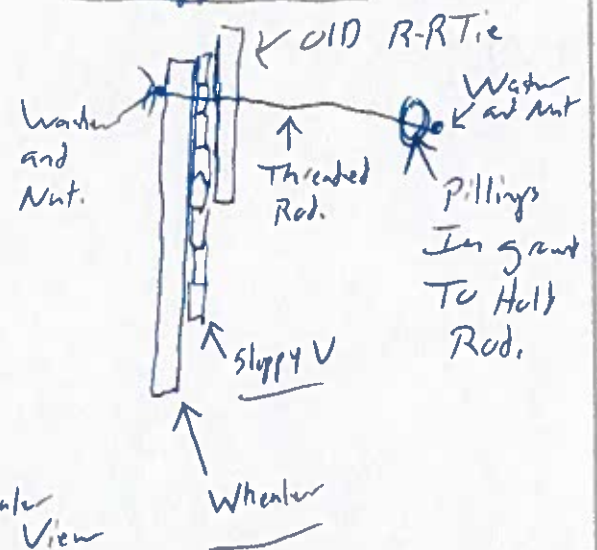 OLD R-R Tie
Washer
and
Nut.
Threaded
Rod.
Water
and Nut
Pillings
In
To Hold
Rod.
Sloppy V
Whealer
View